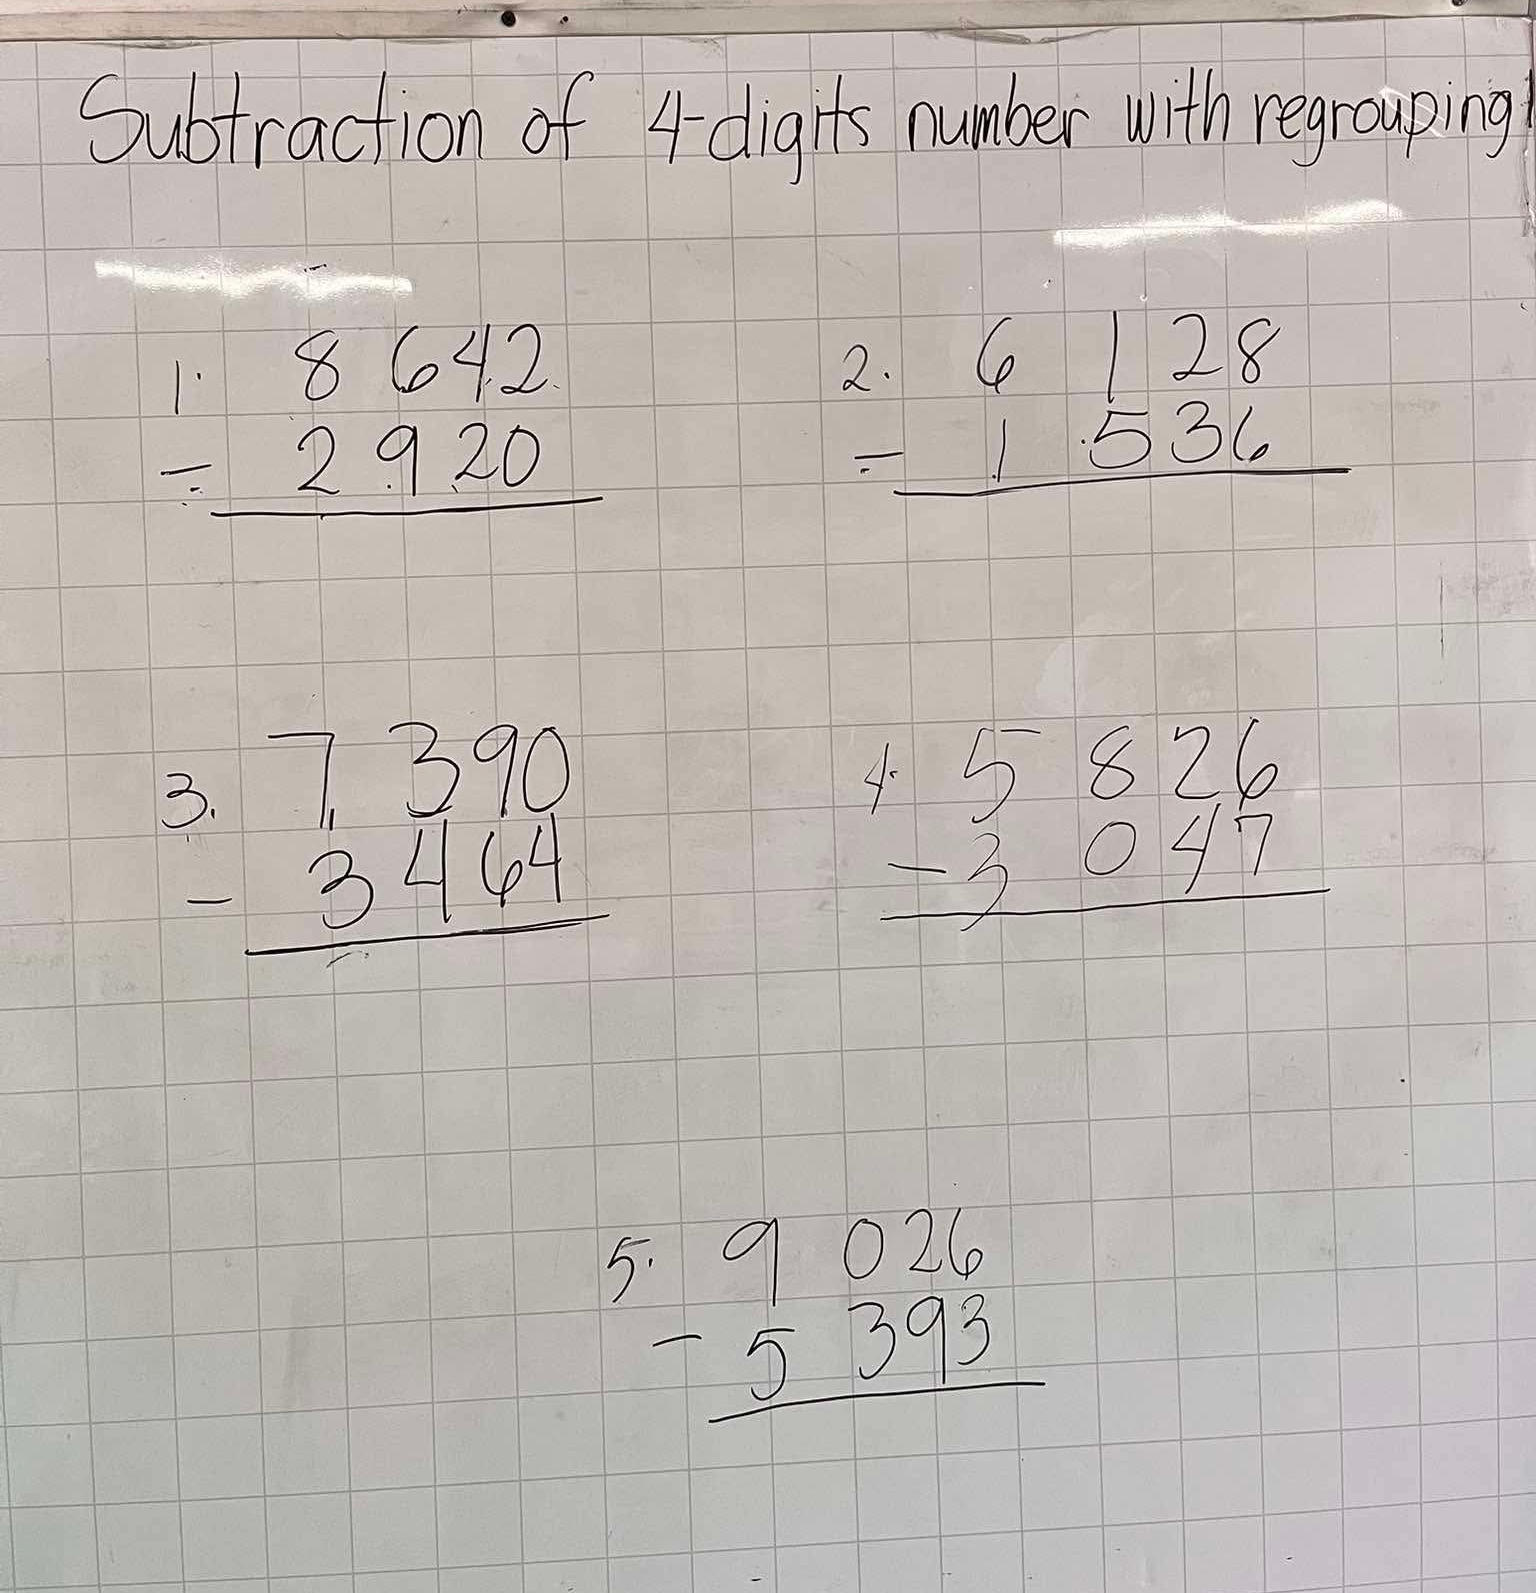 Subtraction of 4-digits number with regrouping
1. 8 642
- 2 920
2. 6 128
- 1 536
3. 7 390
- 3 464
4. 5 826
- 3 047
5. 9 026
- 5 393